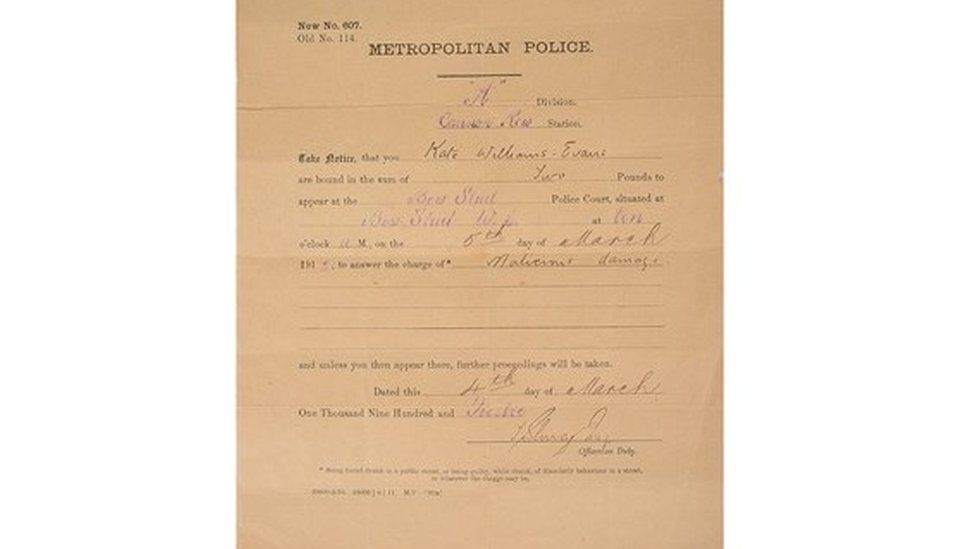 New No. 607.
Old No. 114.
METROPOLITAN POLICE.
"A" Division.
Cannon Row Station.
Take Notice, that you Kate Williams-Evans
are bound in the sum of Two Pounds to
appear at the Bow Street Police Court, situated at
Bow Street W.C. at ten
o'clock a M., on the 5th day of March
191 to answer the charge of* Malicious damage.
and unless you then appear there, further proceedings will be taken.
Dated this 4th day of March
One Thousand Nine Hundred and Twelve
Officer on Duty.
* Being found drunk in a public street, or being guilty, while drunk, of disorderly behaviour in a street,
or whatever the charge may be.
M.P